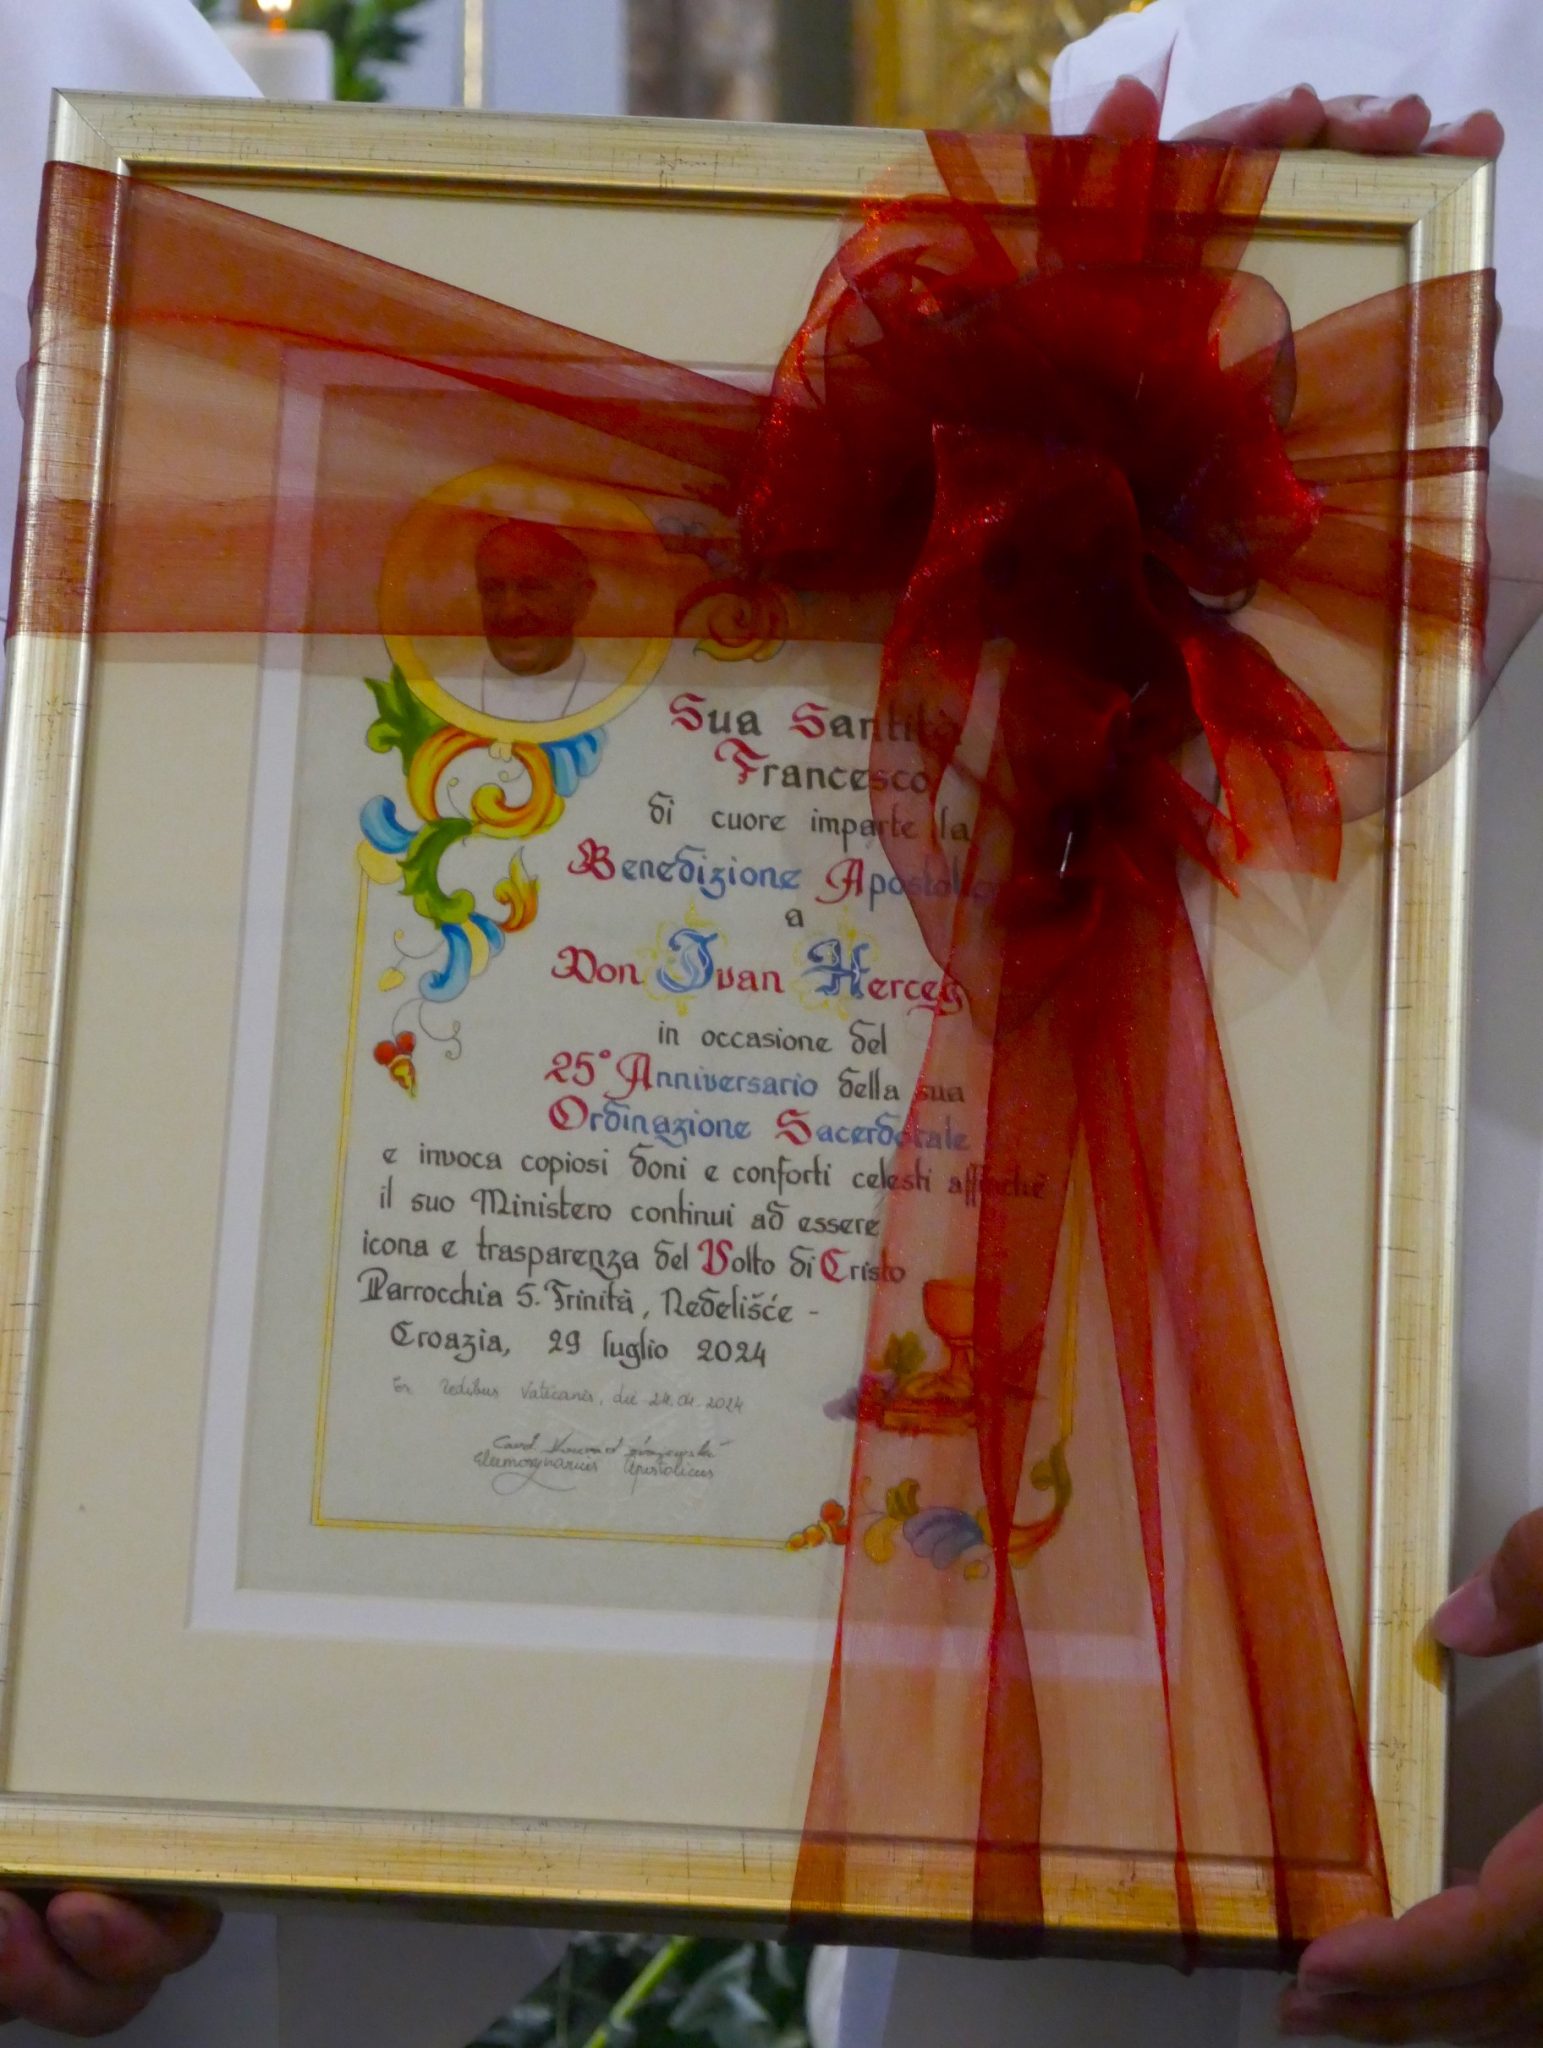 Sua Santità
Francesco
di cuore imparte la
Benedizione Apostolica
a
Don Ivan Herceg
in occasione del
25° Anniversario della sua
Ordinazione Sacerdotale
e invoca copiosi doni e conforti celesti affinché
il suo Ministero continui ad essere
icona e trasparenza del Volto di Cristo
Parrocchia S. Trinità, Nedelišće -
Croazia, 29 luglio 2024
Vaticanis, die 24.04.2024
Card.
Eleemosynarius Apostolicus